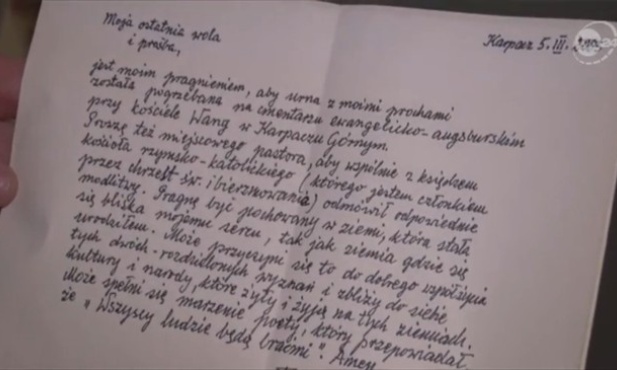 Moja ostatnia wola
i prośba,
Karpacz 5. III.
jest moim pragnieniem, aby urna z moimi prochami
została pogrzebana na cmentarzu ewangelicko-augsburskim
przy kościele Wang w Karpaczu Górnym.
Proszę też miejscowego pastora, aby wspólnie z księdzem
kościoła rzymsko-katolickiego (którego jestem członkiem
przez chrzest św. i bierzmowania) odmówił odpowiednie
modlitwy. Pragnę być pochowany w ziemi, która stała
się bliska mojemu sercu, tak jak ziemia gdzie się
urodziłem. Może przyczyni się to do dobrego współżycia
tych dwóch-rozdzielonych wyznań i zbliży do siebie
kultury i narody, które żyły i żyją na tych ziemiach.
Może spełni się marzenie poety, który przepowiadał,
że "Wszyscy ludzie będą braćmi". Amen